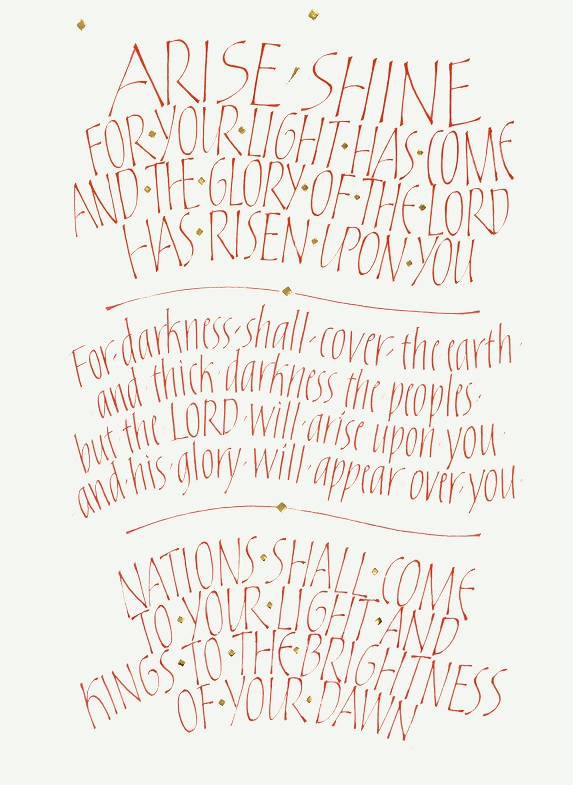 ARISE, SHINE
FOR·YOUR·LIGHT·HAS·COME
AND·THE·GLORY·OF·THE·LORD
HAS·RISEN·UPON·YOU
For·darkness·shall·cover·the earth·
and·thick darkness the peoples·
but·the LORD·will·arise upon you·
and·his·glory·will·appear over·you·
NATIONS·SHALL·COME
TO·YOUR·LIGHT·AND
KINGS·TO·THE·BRIGHTNESS
OF·YOUR·DAWN